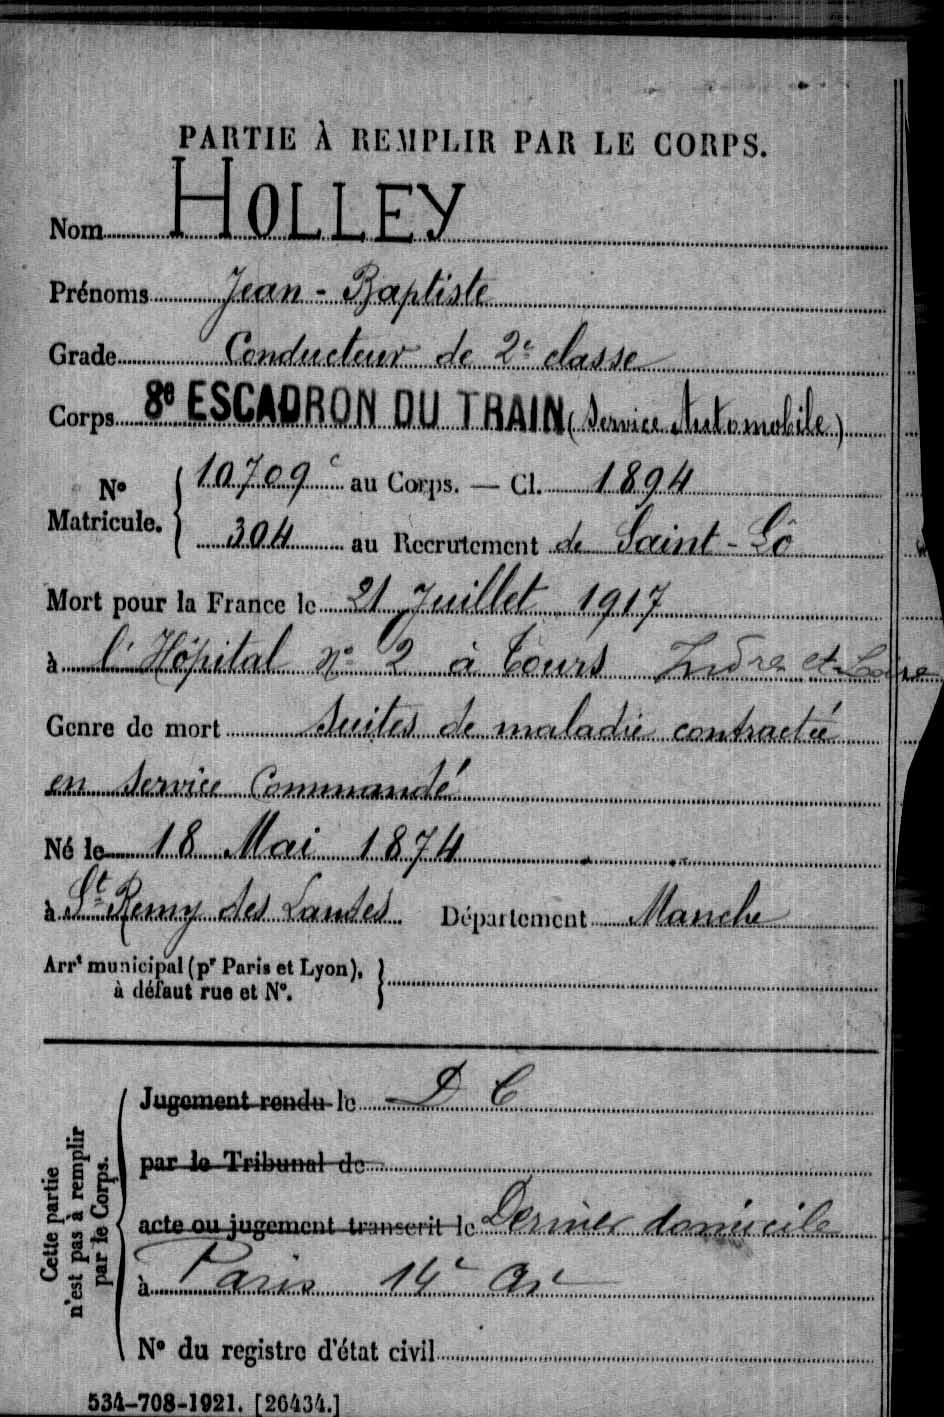 PARTIE À REMPLIR PAR LE CORPS.
Nom HOLLEY
Prénoms Jean - Baptiste
Grade Conducteur de 2e classe
Corps 8e ESCADRON DU TRAIN (Service Automobile)
No Matricule. { 10709 c au Corps. — Cl. 1894
304 au Recrutement de Saint-Lô
Mort pour la France le 21 Juillet 1917
à l'Hôpital No 2 à Tours Indre et Loire
Genre de mort suites de maladie contractée
en service commandé
Né le 18 Mai 1874
à St Remy des Landes Département Manche
Arrt municipal (pr Paris et Lyon),
à défaut rue et No. }
Cette partie
n'est pas à remplir
par le Corps.
Jugement rendu le D C
par le Tribunal de
acte ou jugement transcrit le Dernier domicile
à Paris 14e Ar
No du registre d'état civil
534-708-1921. [26434.]